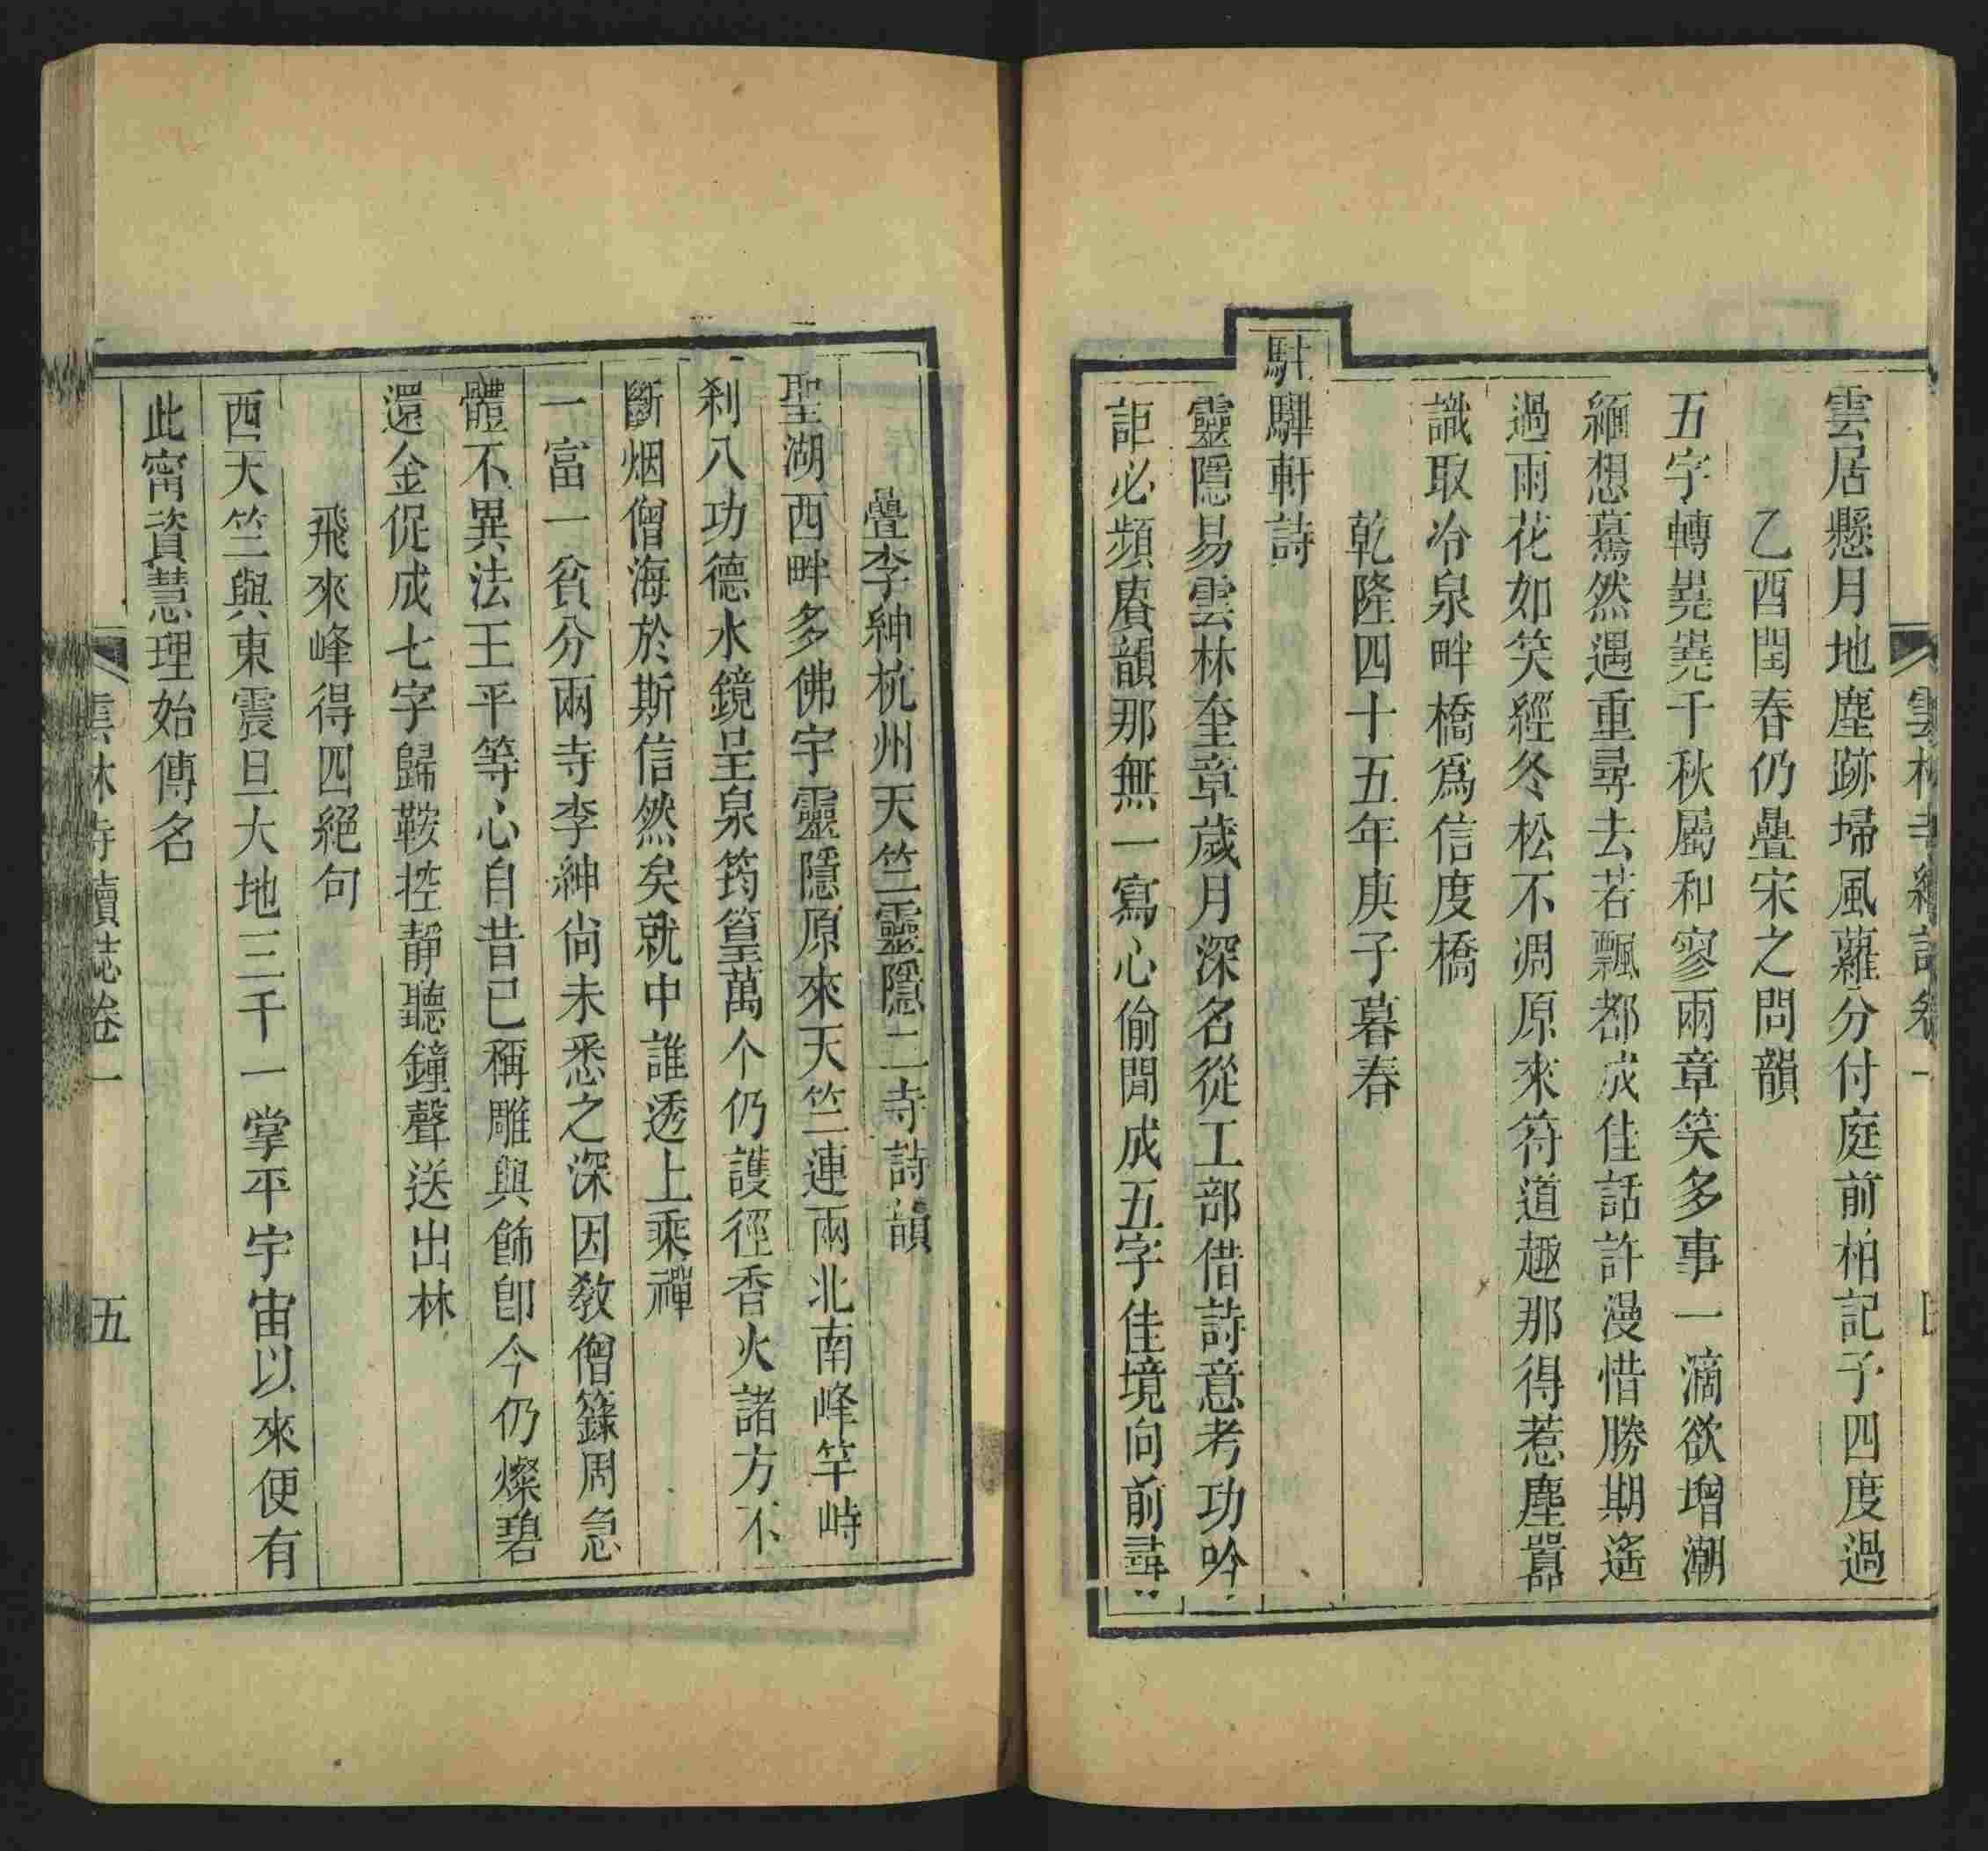 雲居懸月地塵跡埽風蘿分付庭前柏記予四度過
乙酉閏春仍疊宋之問韻
五字轉嶤嶤千秋屬和寥兩章笑多事一滴欲增潮
緬想驀然遇重尋去若飄都成佳話許漫惜勝期遙
過雨花如笑經冬松不凋原來符道趣那得惹塵囂
識取冷泉畔橋爲信度橋
乾隆四十五年庚子暮春
駐驆軒詩
靈隱易雲林奎章歲月深名從工部借詩意考功吟
詎必頻賡韻那無一寫心偷閒成五字佳境向前尋
疊李紳杭州天竺靈隱二寺詩韻
聖湖西畔多佛宇靈隱原來天竺連兩北南峰竿峙
刹八功德水鏡呈泉筠篁萬个仍護徑香火諸方不
斷烟僧海於斯信然矣就中誰透上乘禪
一富一貧分兩寺李紳尙未悉之深因敎僧籙周急
體不異法王平等心自昔已稱雕與飾卽今仍燦碧
還金促成七字歸鞍控靜聽鐘聲送出林
飛來峰得四絕句
西天竺與東震旦大地三千一掌平宇宙以來便有
此甯資慧理始傳名
雲林寺續誌卷一
五